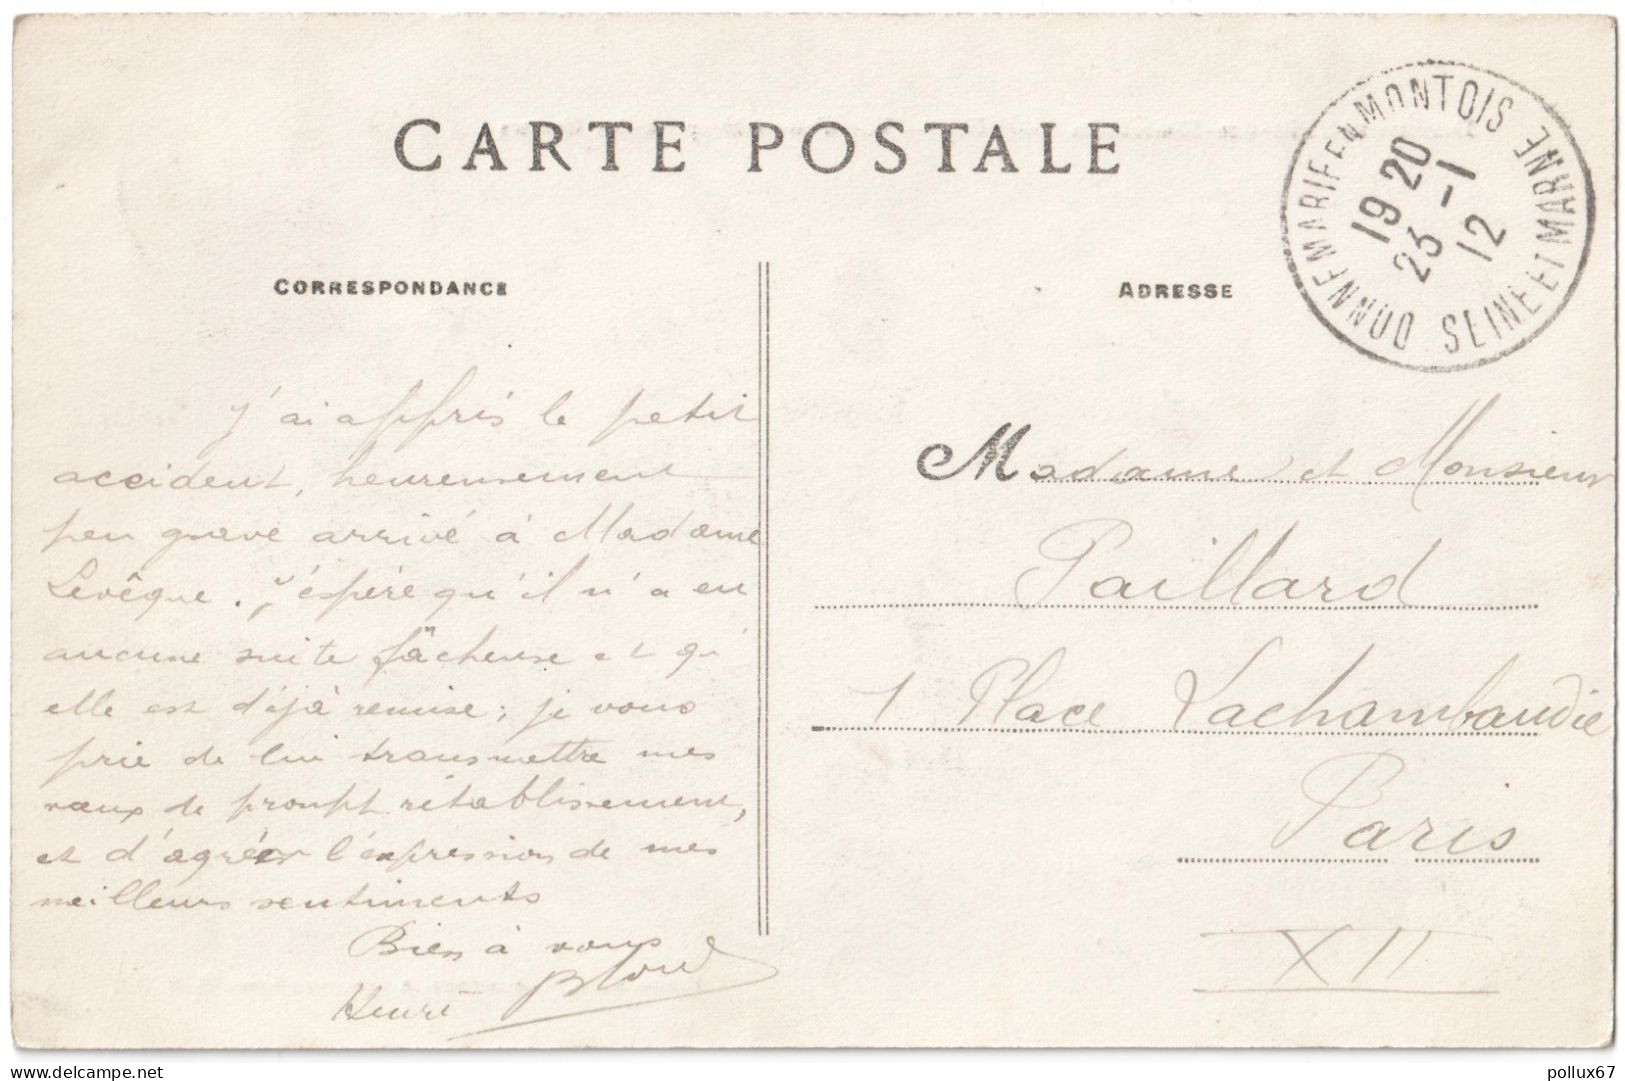 CARTE POSTALE
CORRESPONDANCE
ADRESSE
DONNEMARIE EN MONTOIS
SEINE ET MARNE
19 20
23 -1
12
J'ai appris le petit
accident, heureusement
peu grave arrivé à Madame
Levêque. J'éspère qu'il n'a eu
aucune suite fâcheuse et qu'
elle est déjà remise; je vous
prie de lui transmettre mes
vœux de prompt rétablissement,
et d'agréer l'expression de mes
meilleurs sentiments
Bien à vous
Henri
Madame et Monsieur
Paillard
1 Place Lachambaudie
Paris
XII
delcampe.net
pollux67